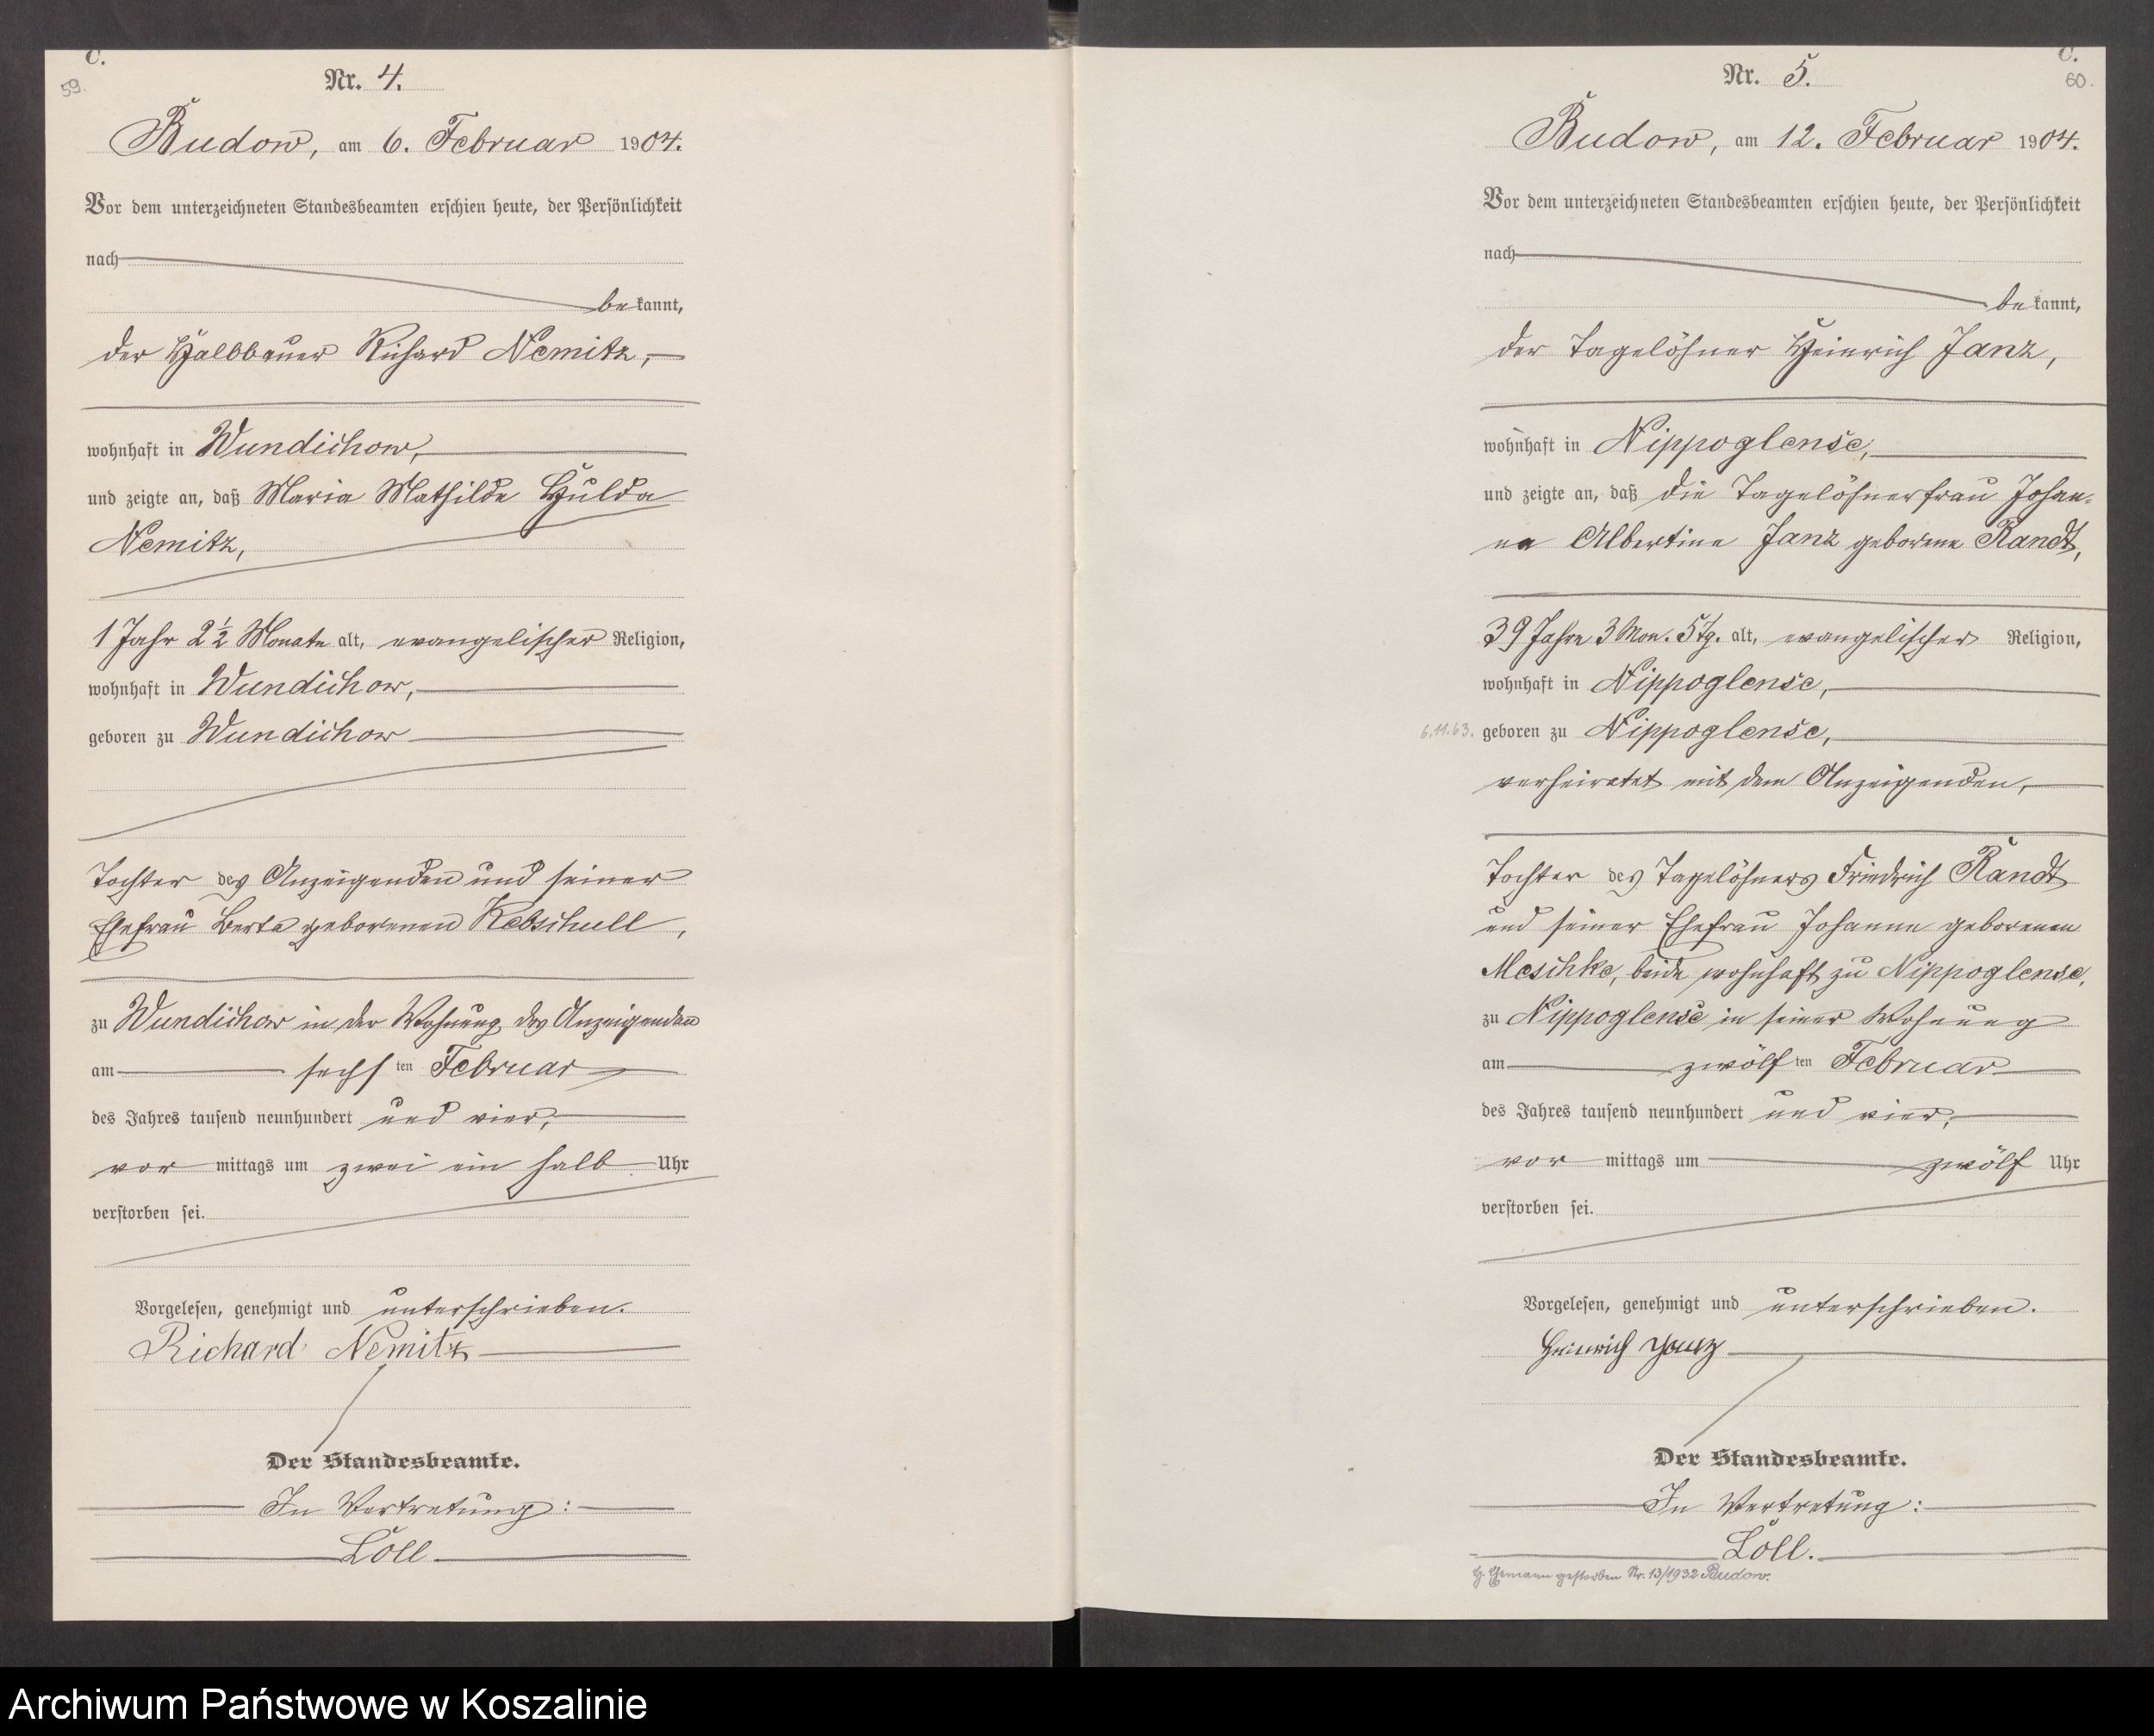 C.
59.
Nr. 4.
Budow, am 6. Februar 1904.
Vor dem unterzeichneten Standesbeamten erschien heute, der Persönlichkeit
nach
bekannt,
der Halbbauer Richard Nemitz,
wohnhaft in Wundichow,
und zeigte an, daß Maria Mathilde Hulda
Nemitz,
1 Jahr 2 ½ Monate alt, evangelischer Religion,
wohnhaft in Wundichow,
geboren zu Wundichow
Tochter des Anzeigenden und seiner
Ehefrau Berta geborenen Kebschull,
zu Wundichow in der Wohnung des Anzeigenden
am sechsten Februar
des Jahres tausend neunhundert und vier,
vor mittags um zwei ein halb Uhr
verstorben sei.
Vorgelesen, genehmigt und unterschrieben.
Richard Nemitz
Der Standesbeamte.
In Vertretung:
Löll
C.
60.
Nr. 5.
Budow, am 12. Februar 1904.
Vor dem unterzeichneten Standesbeamten erschien heute, der Persönlichkeit
nach
bekannt,
der Tagelöhner Heinrich Janz,
wohnhaft in Nippoglense,
und zeigte an, daß die Tagelöhnerfrau Johan-
na Albertine Janz geborene Randt,
39 Jahre 3 Mon. 5 Tg. alt, evangelischer Religion,
wohnhaft in Nippoglense,
6.11.63. geboren zu Nippoglense,
verheiratet mit dem Anzeigenden,
Tochter des Tagelöhners Friedrich Randt
und seiner Ehefrau Johanne geborenen
Meschke, beide wohnhaft zu Nippoglense,
zu Nippoglense in seiner Wohnung
am zwölften Februar
des Jahres tausend neunhundert und vier,
vor mittags um zwölf Uhr
verstorben sei.
Vorgelesen, genehmigt und unterschrieben.
Heinrich Janz
Der Standesbeamte.
In Vertretung:
Löll.
Ehemann gestorben Nr. 13/1932 Budow.
Archiwum Państwowe w Koszalinie